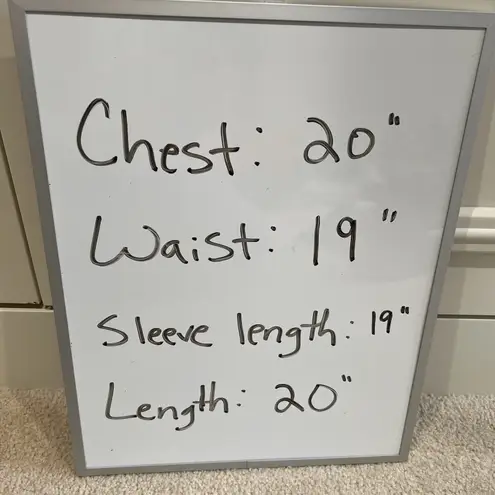 Chest: 20"
Waist: 19"
Sleeve length: 19"
Length: 20"